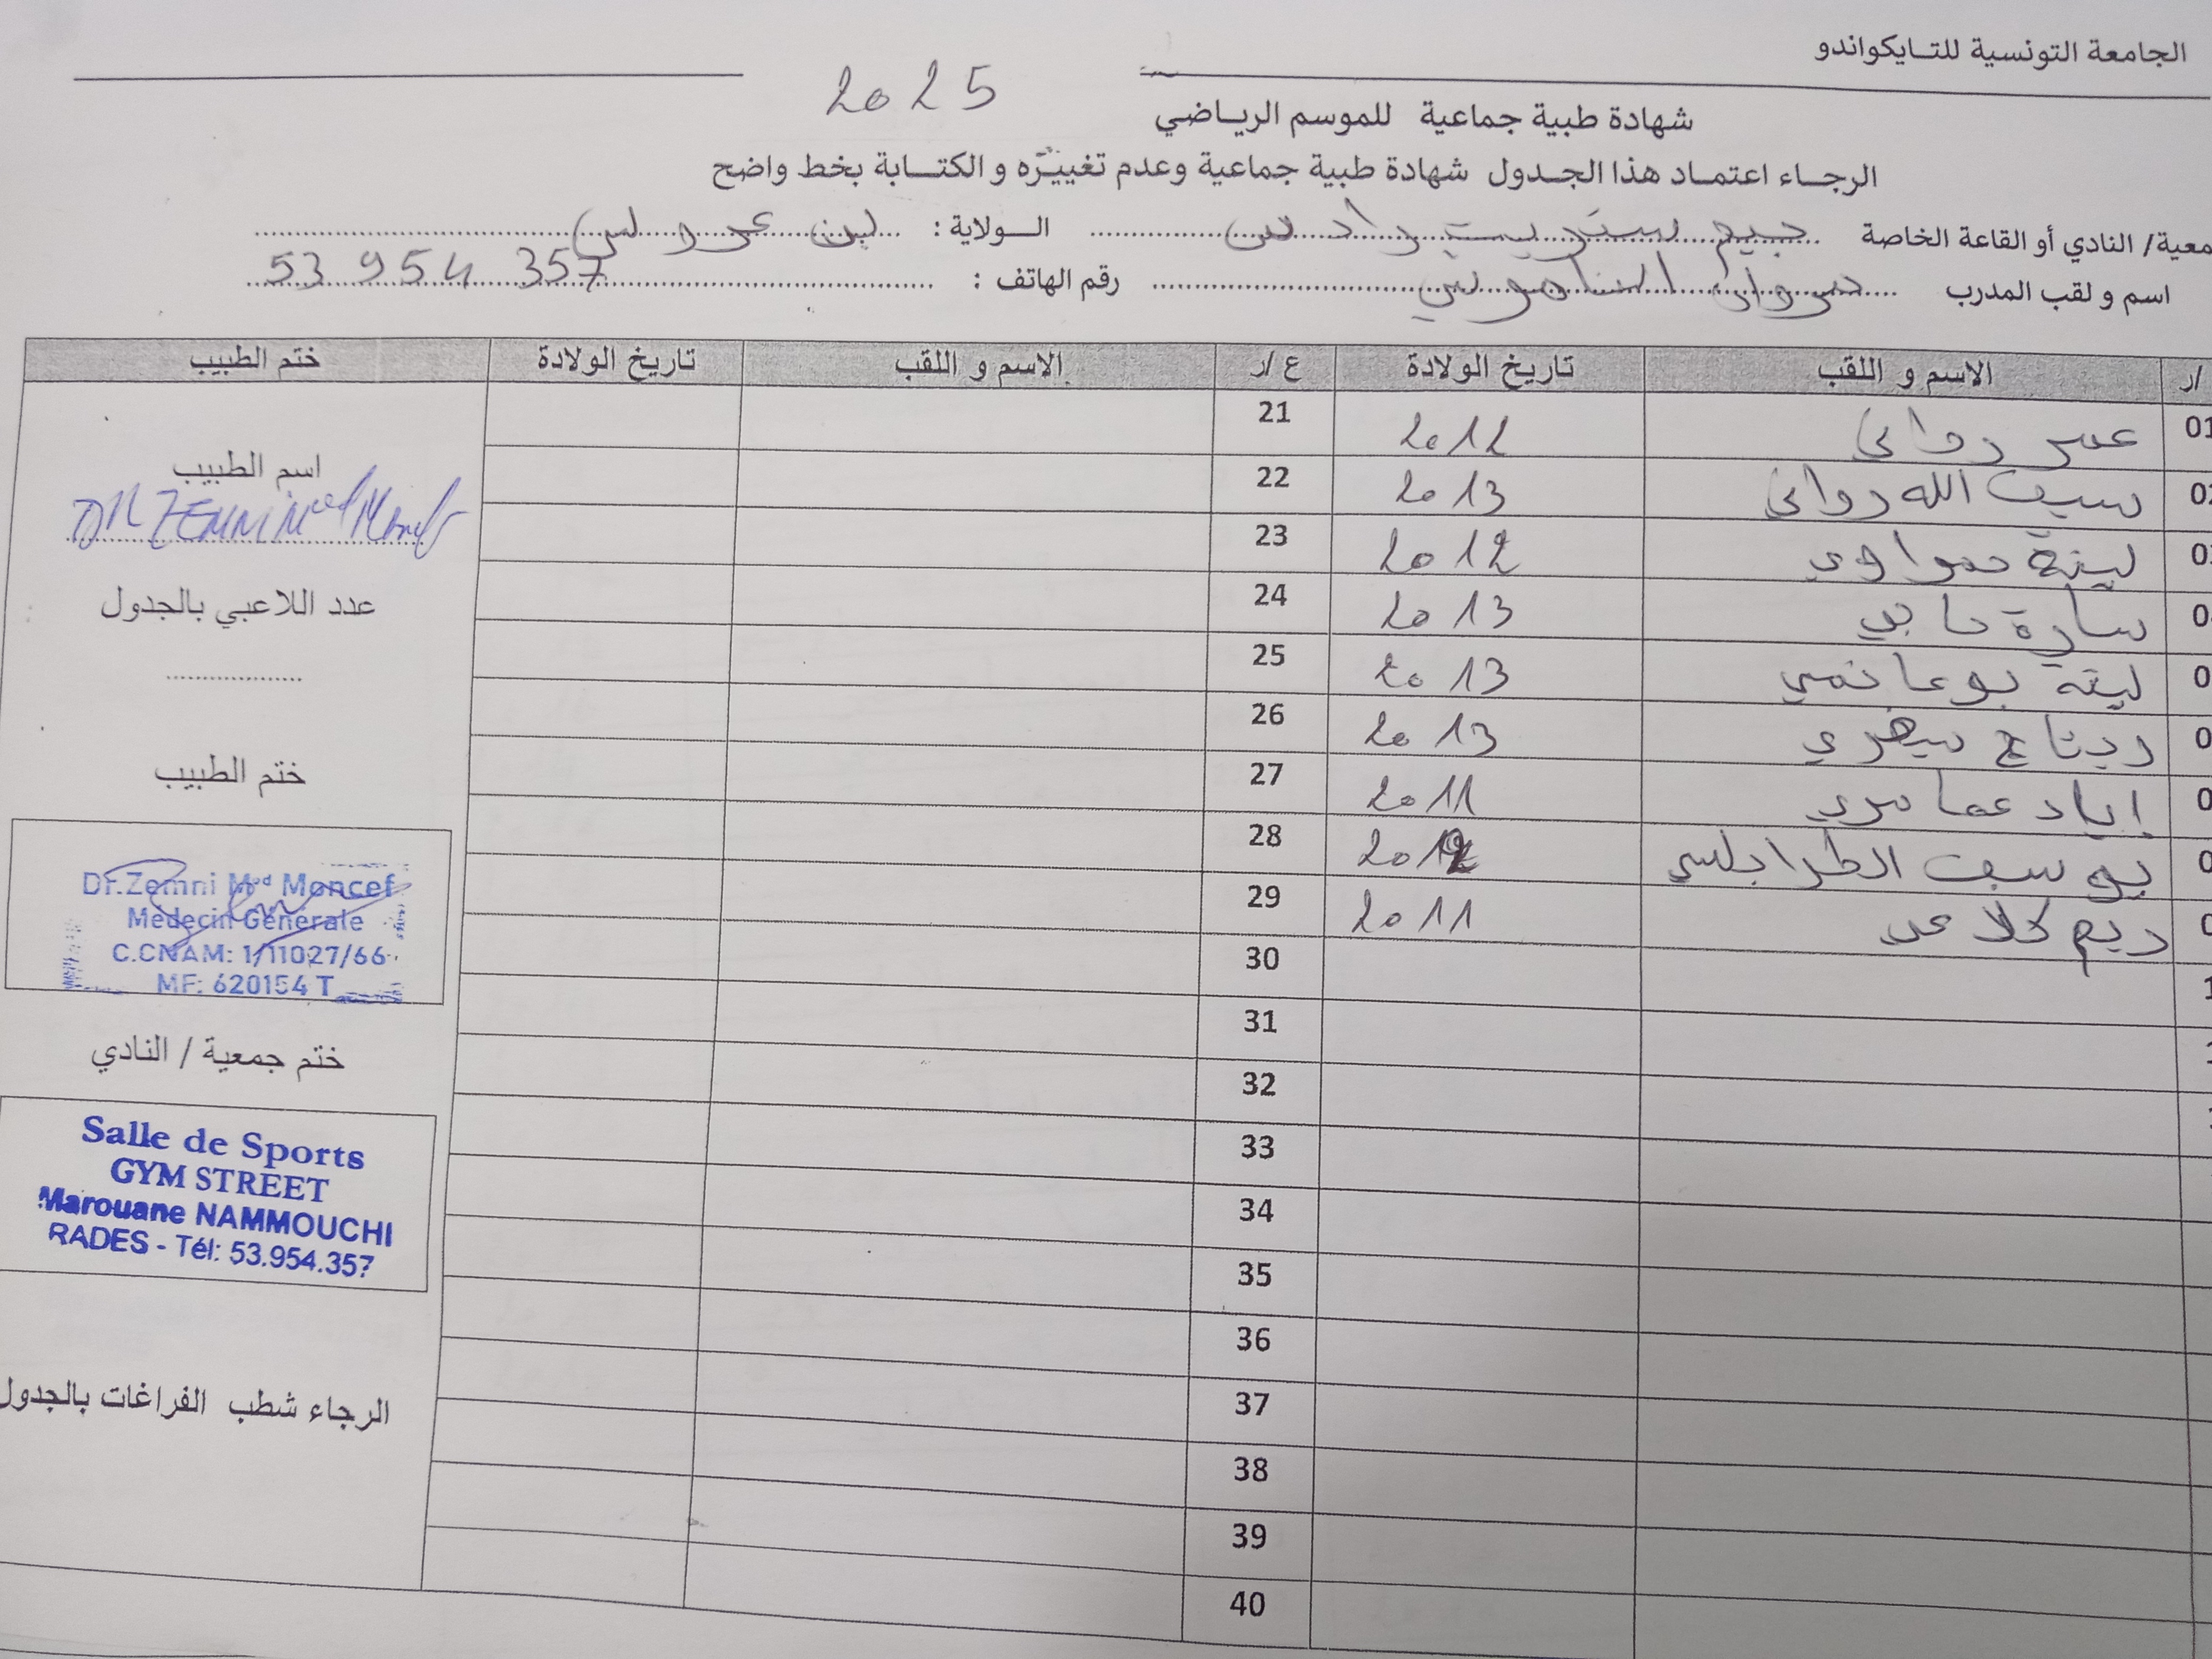 الجامعة التونسية للتـايكواندو
شهادة طبية جماعية للموسم الرياضي 2025
الرجـاء اعتمـاد هذا الجـدول شهادة طبية جماعية وعدم تغييّره و الكتـابة بخط واضح
معية/ النادي أو القاعة الخاصة جيم ستريت رادس الـولاية : بن عروس
اسم و لقب المدرب مروان الناموشي رقم الهاتف : 53 954 357
/ر الاسم و اللقب تاريخ الولادة ع /ر الاسم و اللقب تاريخ الولادة ختم الطبيب
01 عمر 2012 21
سيف الله 2013 22
لينة 2012 23
سارة 2013 24
لينة بوعانمي 2013 25
ريتاج 2013 26
إياد عمامري 2011 27
يوسف الطرابلسي 28
ريم كلاعي 2011 29
30
31
32
33
34
35
36
37
38
39
40
اسم الطبيب
DR ZEMNI Med Moncef
عدد اللاعبي بالجدول
ختم الطبيب
Dr.Zemni Med Moncef
Médecin Générale
C.CNAM: 1/11027/66
MF: 620154 T
ختم جمعية / النادي
Salle de Sports
GYM STREET
Marouane NAMMOUCHI
RADES - Tél: 53.954.357
الرجاء شطب الفراغات بالجدول